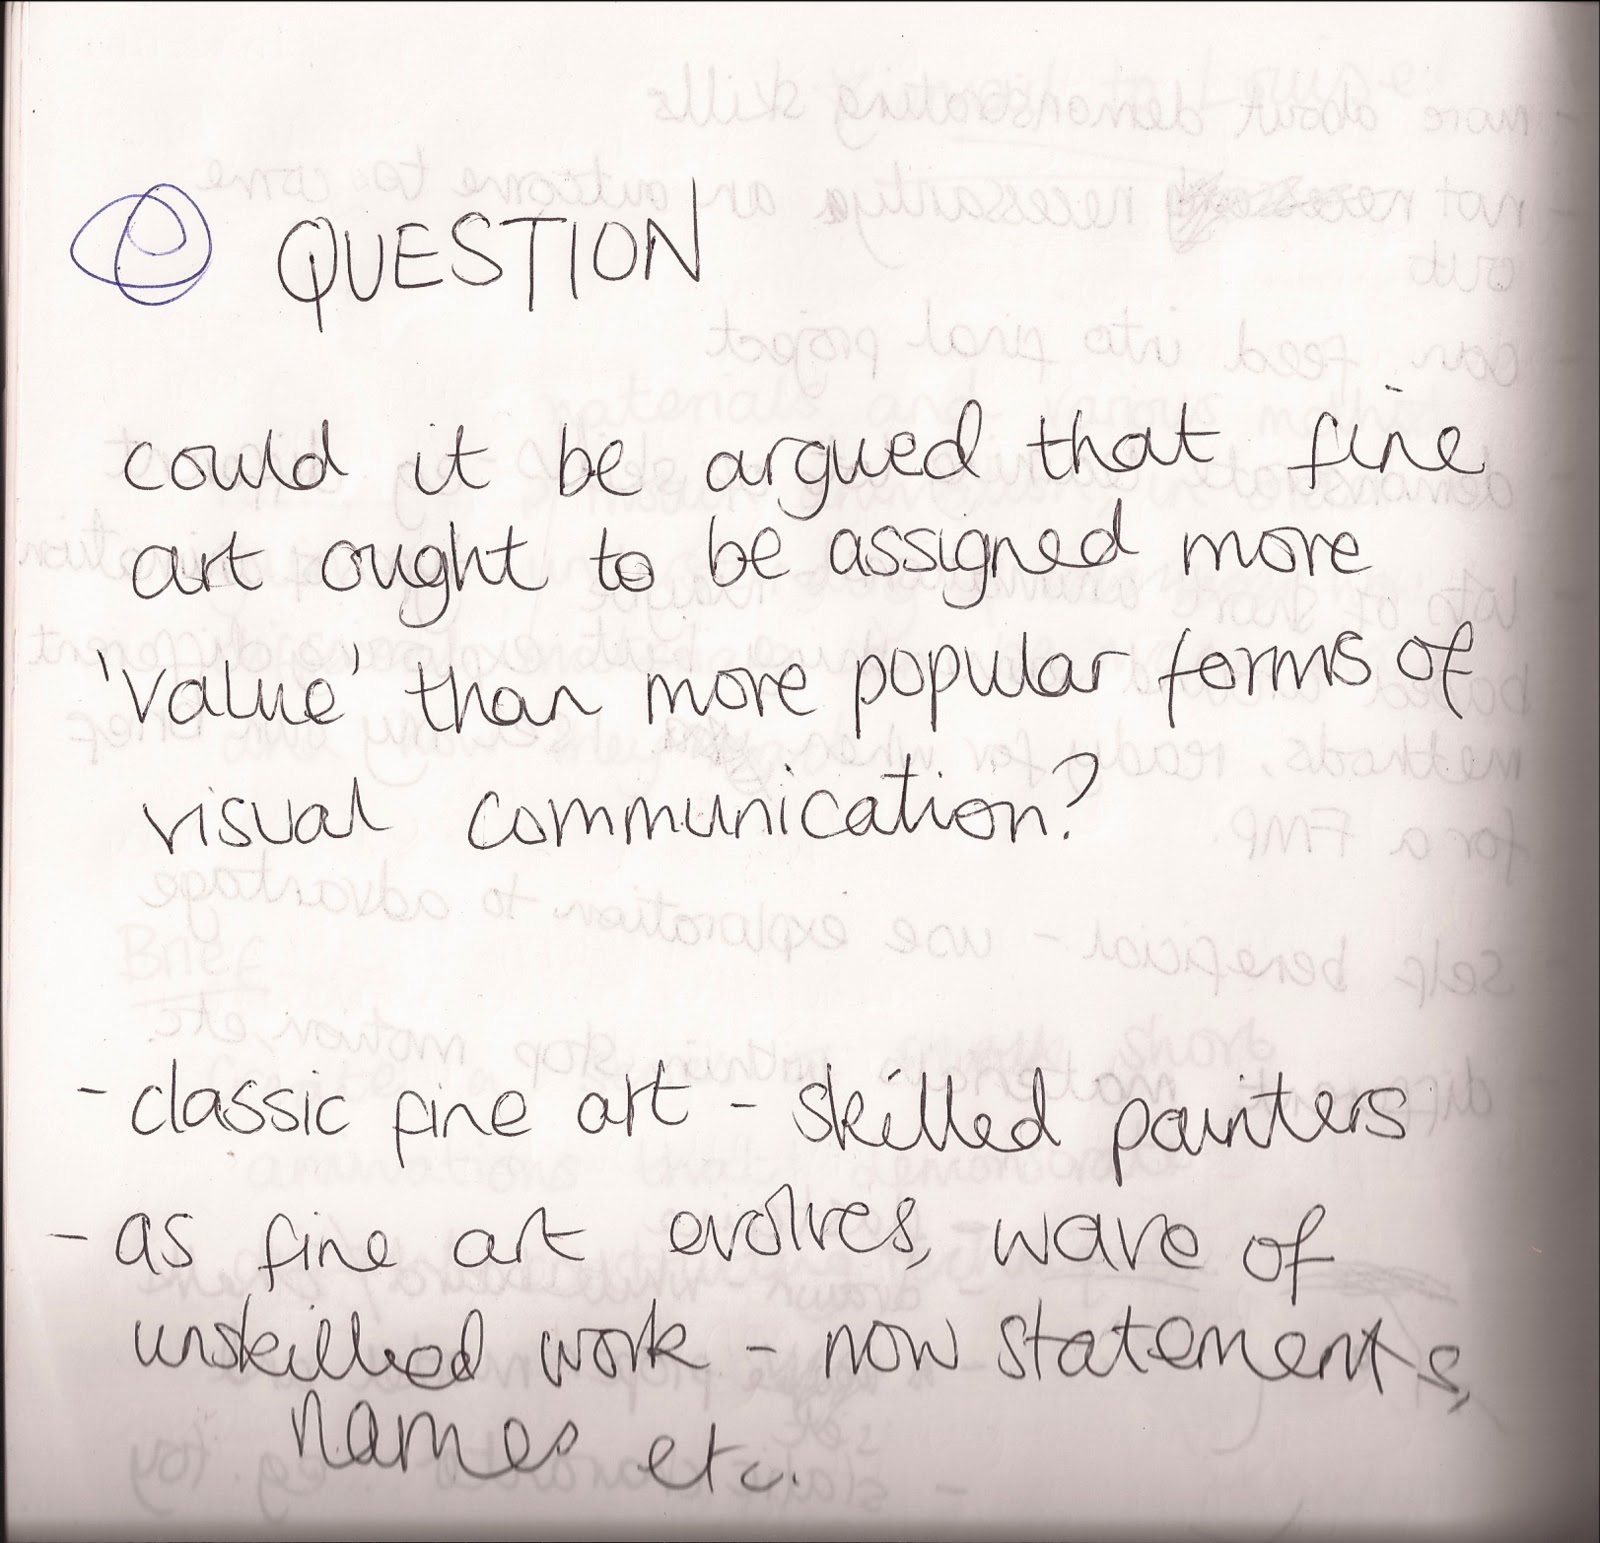 QUESTION
could it be argued that fine
art ought to be assigned more
'value' than more popular forms of
visual communication?
- classic fine art - skilled painters
- as fine art evolves, - wave of
unskilled work - now statements,
names etc.